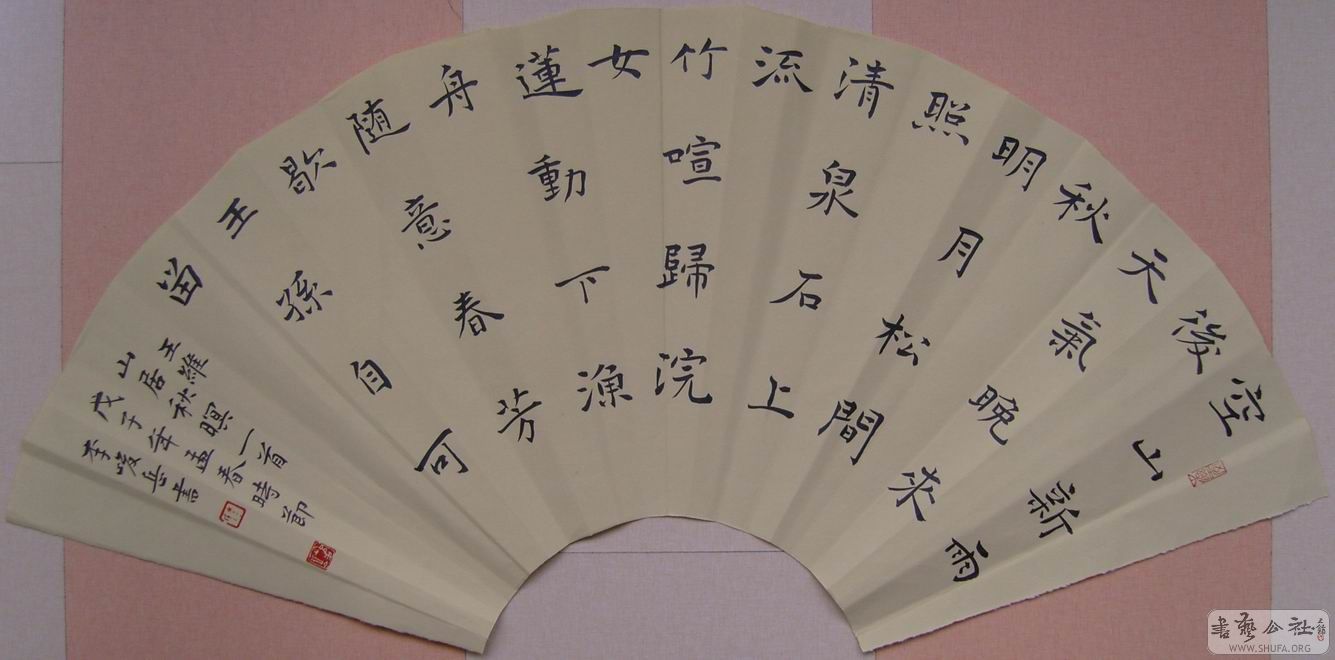 空山新雨
後
天氣晚來
秋
明月松間
照
清泉石上
流
竹喧歸浣
女
蓮動下漁
舟
随意春芳
歇
王孫自可
留
王維
山居秋暝一首
戊子年孟春時節
李峻書
書藝公社
WWW.SHUFA.ORG